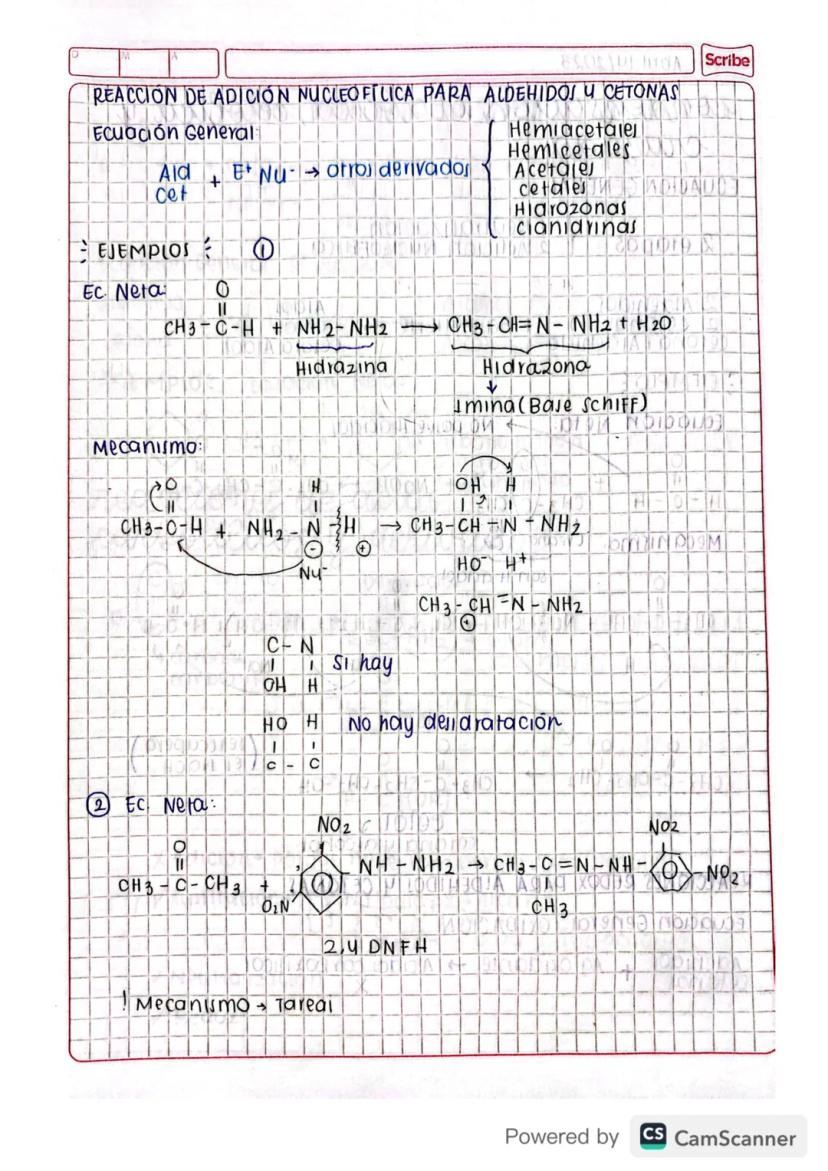 O M A Scribe
REACCIÓN DE ADICIÓN NUCLEOFÍLICA PARA ALDEHIDOS Y CETONAS
Ecuación General:
Ald + E⁺ Nu⁻ → otros derivados
Cet
Hemiacetales
Hemicetales
Acetales
cetales
Hidrozonas
cianidrinas
EJEMPLOS ①
Ec. Neta:
O
||
CH3 - C - H + NH2 - NH2 → CH3 - CH = N - NH2 + H2O
Hidrazina Hidrazona
↓
Imina (Base Schiff)
Mecanismo:
O H OH H
|| | | |
CH3 - C - H + NH2 - N - H → CH3 - CH - N - NH2
⊖ ⊕
Nu⁻
HO⁻ H⁺
CH3 - CH = N - NH2
⊕
C - N
| | Si hay
OH H
HO H No hay desidratación
| |
C - C
② Ec. Neta:
NO2 NO2
O
||
CH3 - C - CH3 + NH - NH2 → CH3 - C = N - NH - NO2
O2N CH3
2,4 DNFH
! Mecanismo → Tarea!
Powered by CS CamScanner